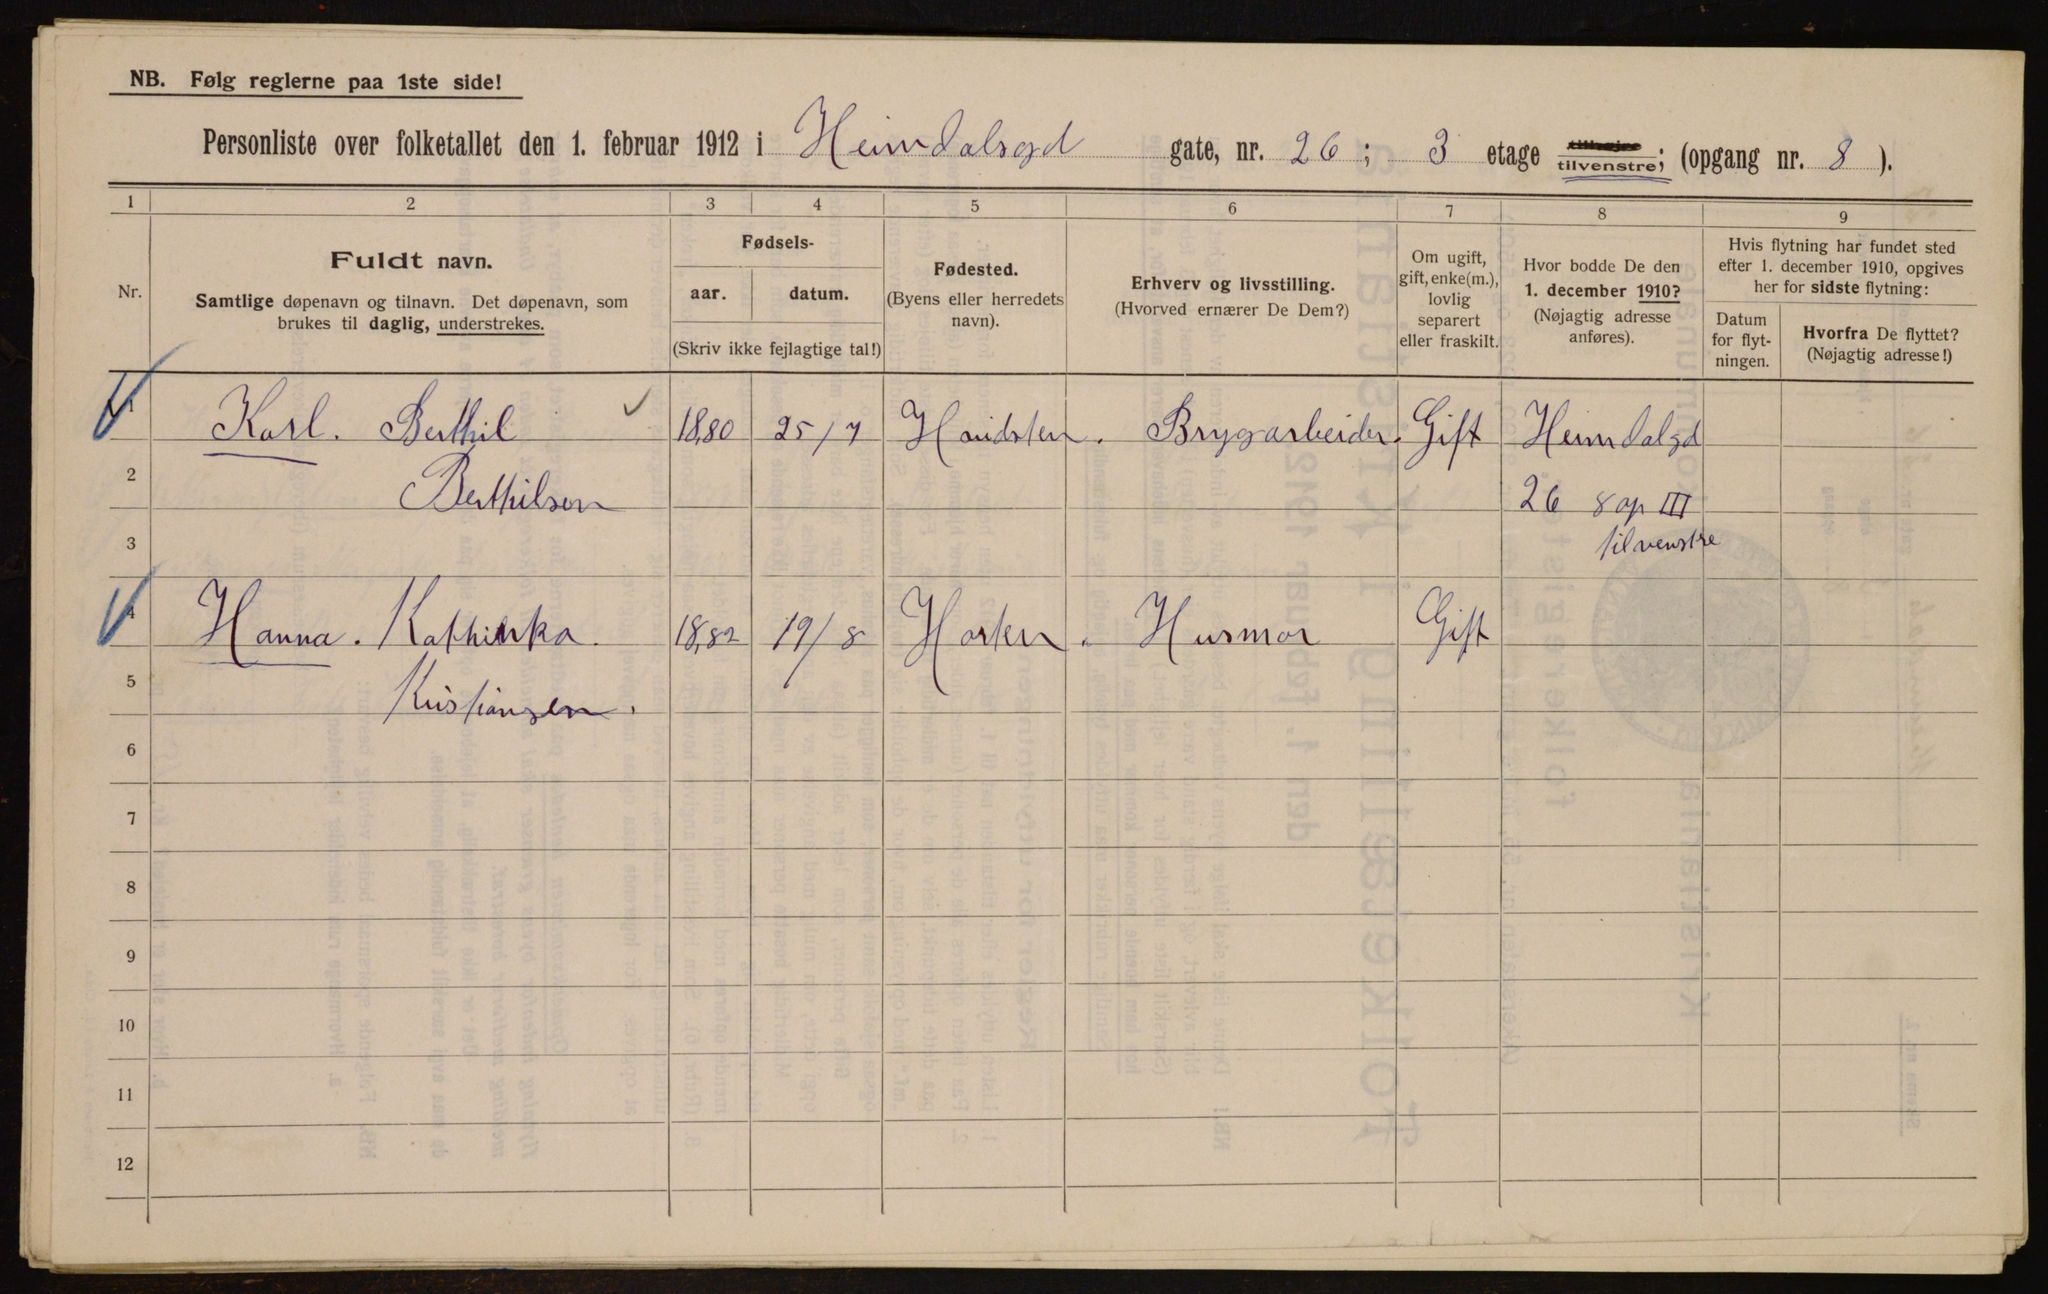 NB. Følg reglerne paa 1ste side!
Personliste over folketallet den 1. februar 1912 i Heimdalsgd gate, nr. 26; 3 etage tilhøjre tilvenstre; (opgang nr. 8).
1 2 3 4 5 6 7 8 9
Nr.
Fuldt navn.
Samtlige døpenavn og tilnavn. Det døpenavn, som
brukes til daglig, understrekes.
Fødsels-
aar. datum.
(Skriv ikke fejlagtige tal!)
Fødested.
(Byens eller herredets
navn).
Erhverv og livsstilling.
(Hvorved ernærer De Dem?)
Om ugift,
gift, enke(m.),
lovlig
separert
eller fraskilt.
Hvor bodde De den
1. december 1910?
(Nøjagtig adresse
anføres).
Hvis flytning har fundet sted
efter 1. december 1910, opgives
her for sidste flytning:
Datum
for flyt-
ningen.
Hvorfra De flyttet?
(Nøjagtig adresse!)
1 Karl. Berthil 18,80 25/7 Bryggarbeider. Gift Heimdalgd
2 Berthilsen 26 8 op III
3 tilvenstre
4 Hanna. Kathinka. 18,82 19/8 Horten. Husmor Gift
5 Kristiansen.
6
7
8
9
10
11
12